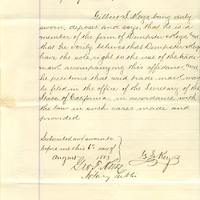 Gilbert S. Keys being duly
sworn, deposes and says, that he is a
member of the firm of Dempster & Keys, and
that he verily believes that Dempster & Keys
have the sole right to the use of the trade
mark accompanying this affidavit, and
he presumes that said trade mark may
be filed in the office of the Secretary of the
State of California in accordance with
the law in such cases made and
provided
Subscribed and sworn to
before me this 6th day of
August 1883
Geo. T.
Notary Public
G. S. Keys